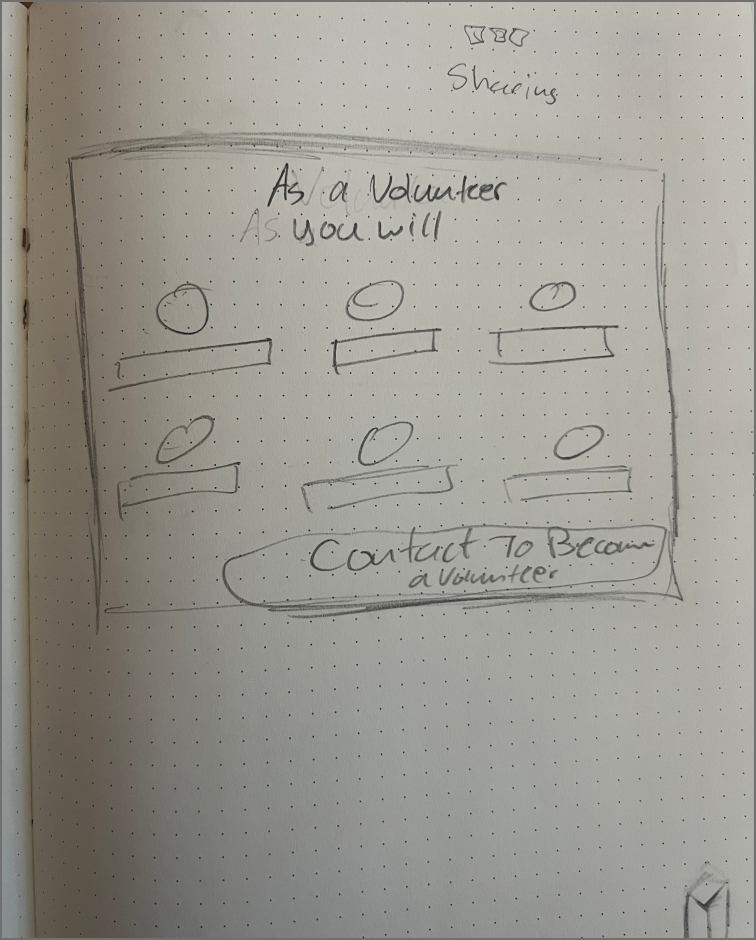 Sharing
As a Volunteer
As you will
Contact To Become
a Volunteer